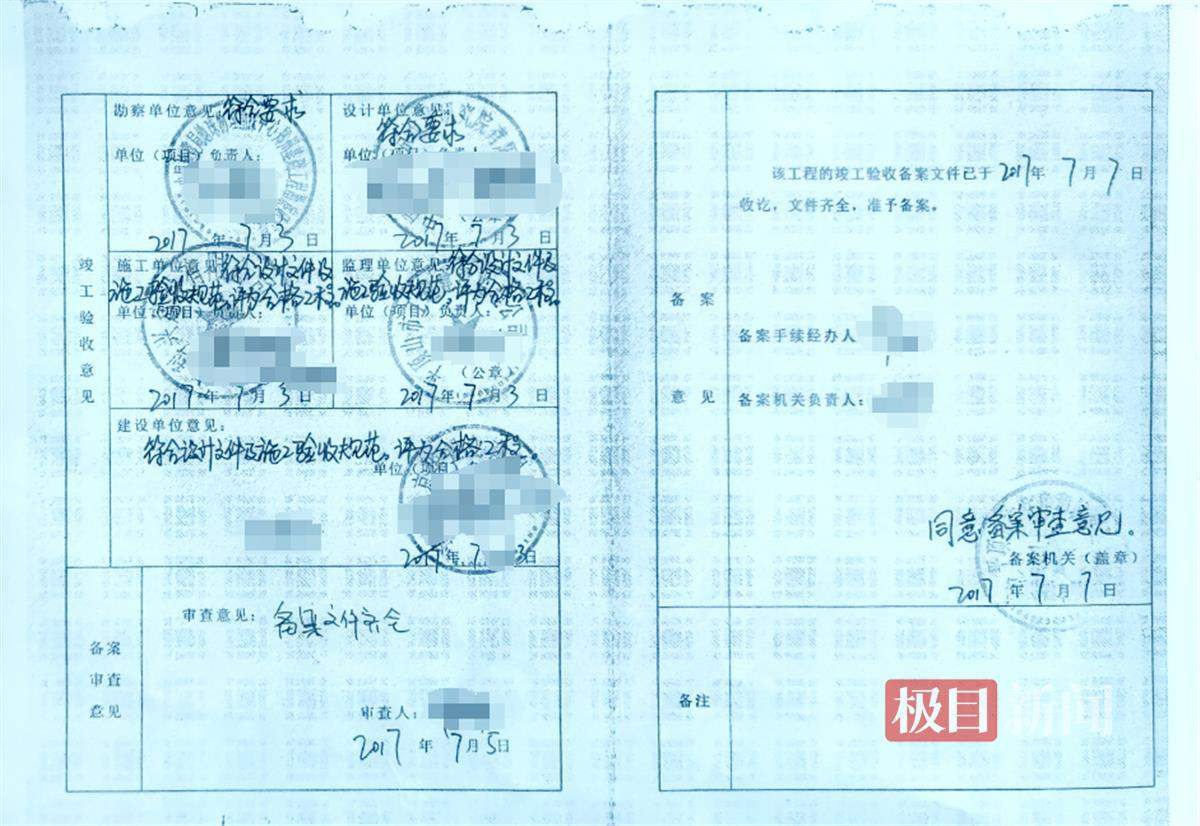 竣工验收意见
勘察单位意见：符合要求
单位（项目）负责人：
2017年7月3日
设计单位意见：
符合要求
单位（项目）负责人：
2017年7月3日
施工单位意见：符合设计文件及
施工验收规范，评为合格工程。
单位（项目）负责人：
2017年7月3日
监理单位意见：符合设计文件及
施工验收规范，评为合格工程。
单位（项目）负责人：
（公章）
2017年7月3日
建设单位意见：
符合设计文件及施工验收规范，评为合格工程。
单位（项目）
2017年7月3日
备案
审查
意见
审查意见：
文件齐全
审查人：
2017年7月5日
备案
意见
该工程的竣工验收备案文件已于2017年7月7日
收讫，文件齐全，准予备案。
备案手续经办人
备案机关负责人：
同意备案审查意见。
备案机关（盖章）
2017年7月7日
备注
极目新闻